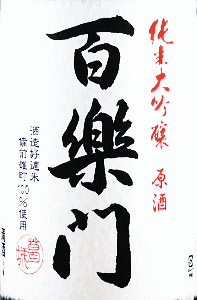 純米大吟醸 原酒
百樂门
酒造好適米
備前雄町100%使用
清酒